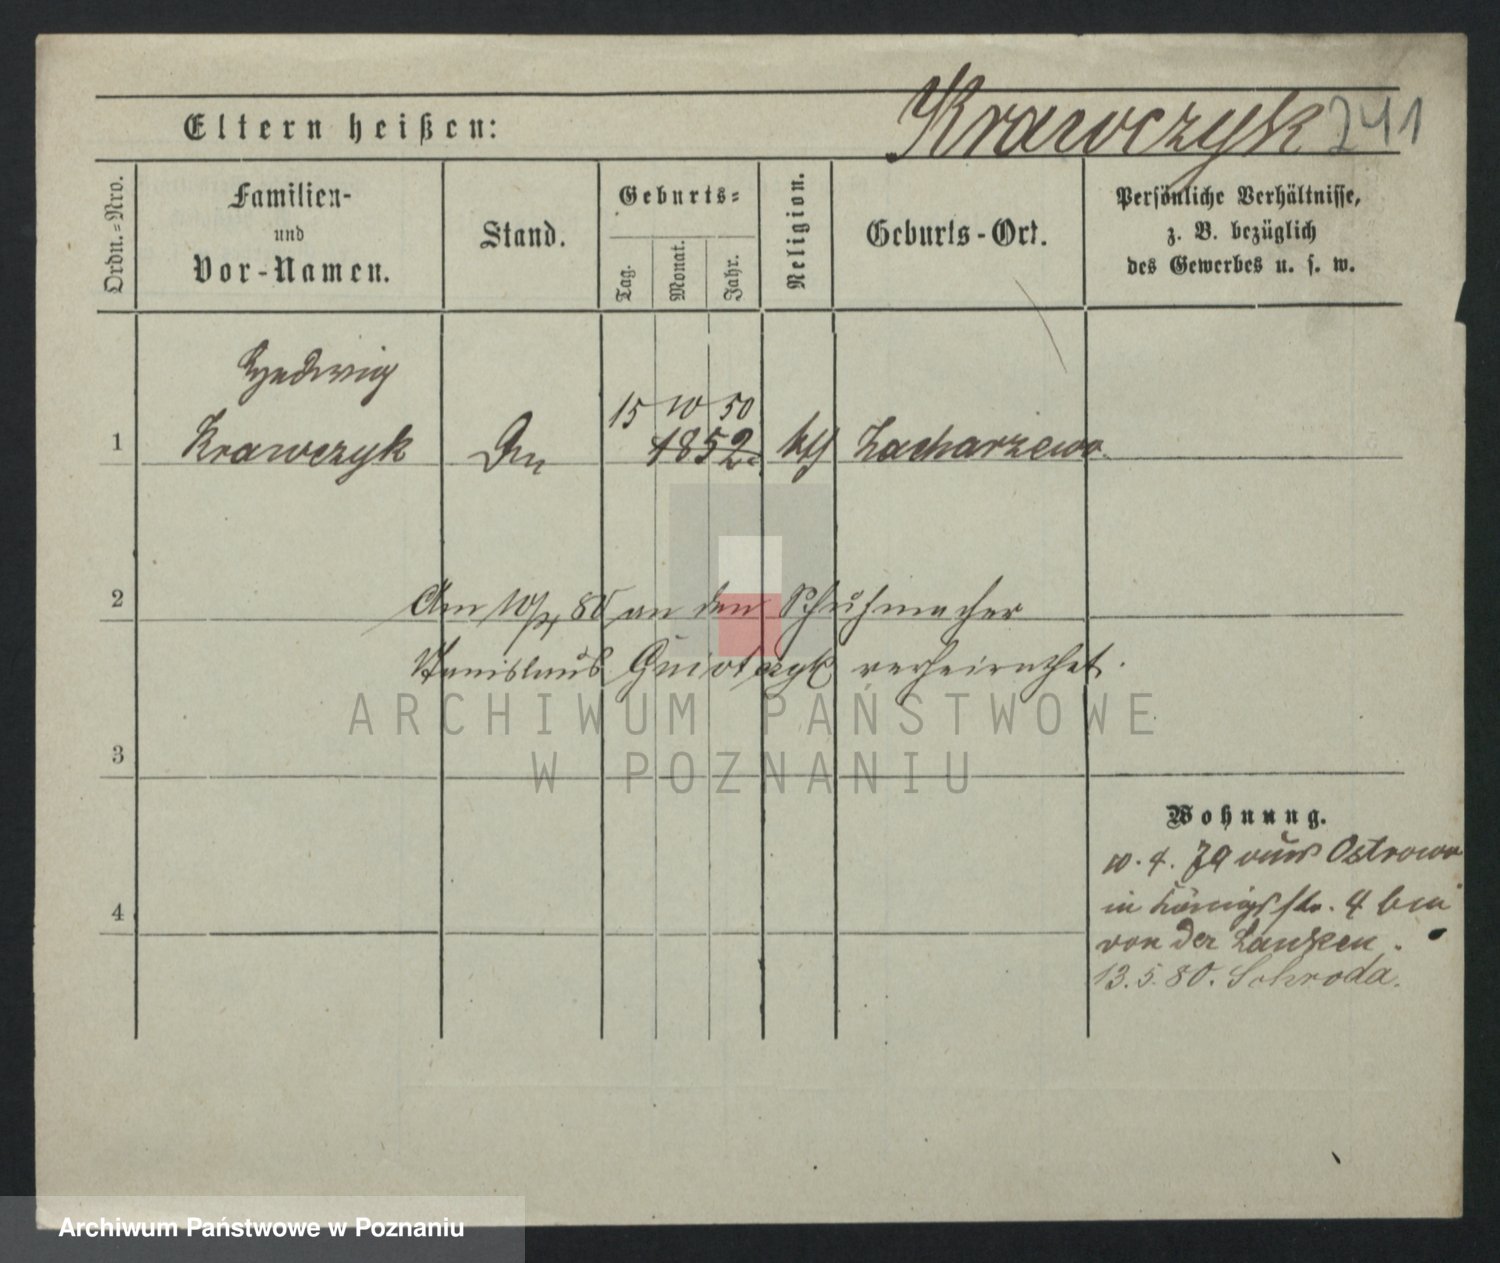 Eltern heißen: Krawczyk 241
Ordn.-Nro.
Familien-
und
Vor-Namen.
Stand.
Geburts-
Tag.
Monat.
Jahr.
Religion.
Geburts-Ort.
Persönliche Verhältnisse,
z. B. bezüglich
des Gewerbes u. s. w.
Hedwig
15 10 50
1 Krawczyk Dn 1852 kth Zacharzewo
2 Am 10/ 80 an den Schuhmacher
Stanislaus verheirathet.
ARCHIWUM PAŃSTWOWE
W POZNANIU
3
Wohnung.
w. 4. 79 aus Ostrowo
in Königsstr. 4 bei
4
von der Lanken.
13.5.80. Schroda.
Archiwum Państwowe w Poznaniu